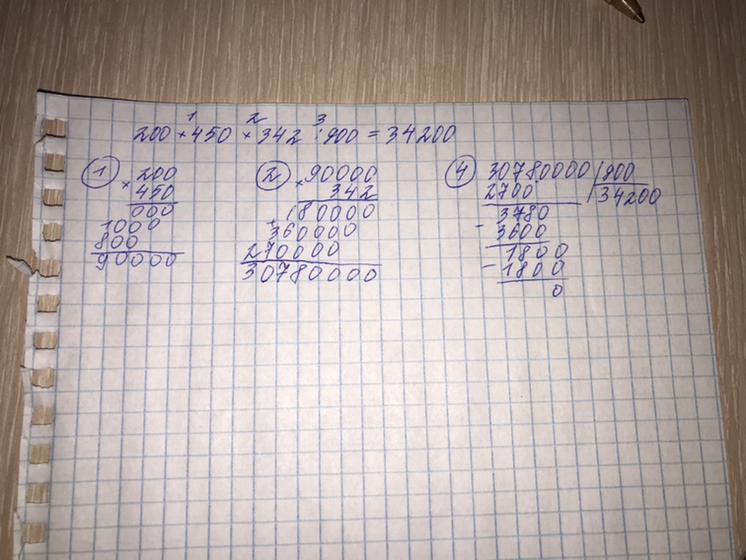 1 2 3
200 × 450 × 342 : 900 = 34200
1
200
× 450
000
1000
800
90000
2
90000
× 342
180000
+ 360000
270000
30780000
4
30780000 900
2700 34200
3780
- 3600
1800
- 1800
0